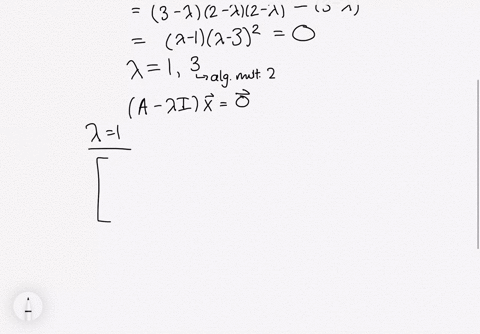 = (3-λ)(2-λ)(2-λ) - (3-λ)
= (λ-1)(λ-3)² = 0
λ = 1, 3
↳ alg. mult. 2
(A - λI) x⃗ = 0⃗
λ = 1
[